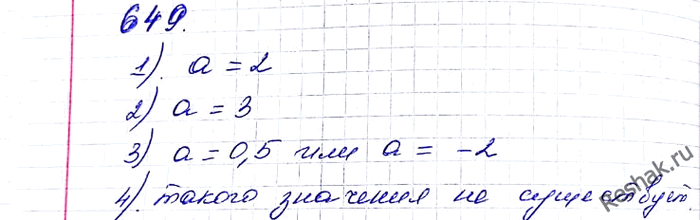 649.
1). a = 2
2) a = 3
3) a = 0,5 или a = -2
4). такого значения не существует.
Reshak.ru